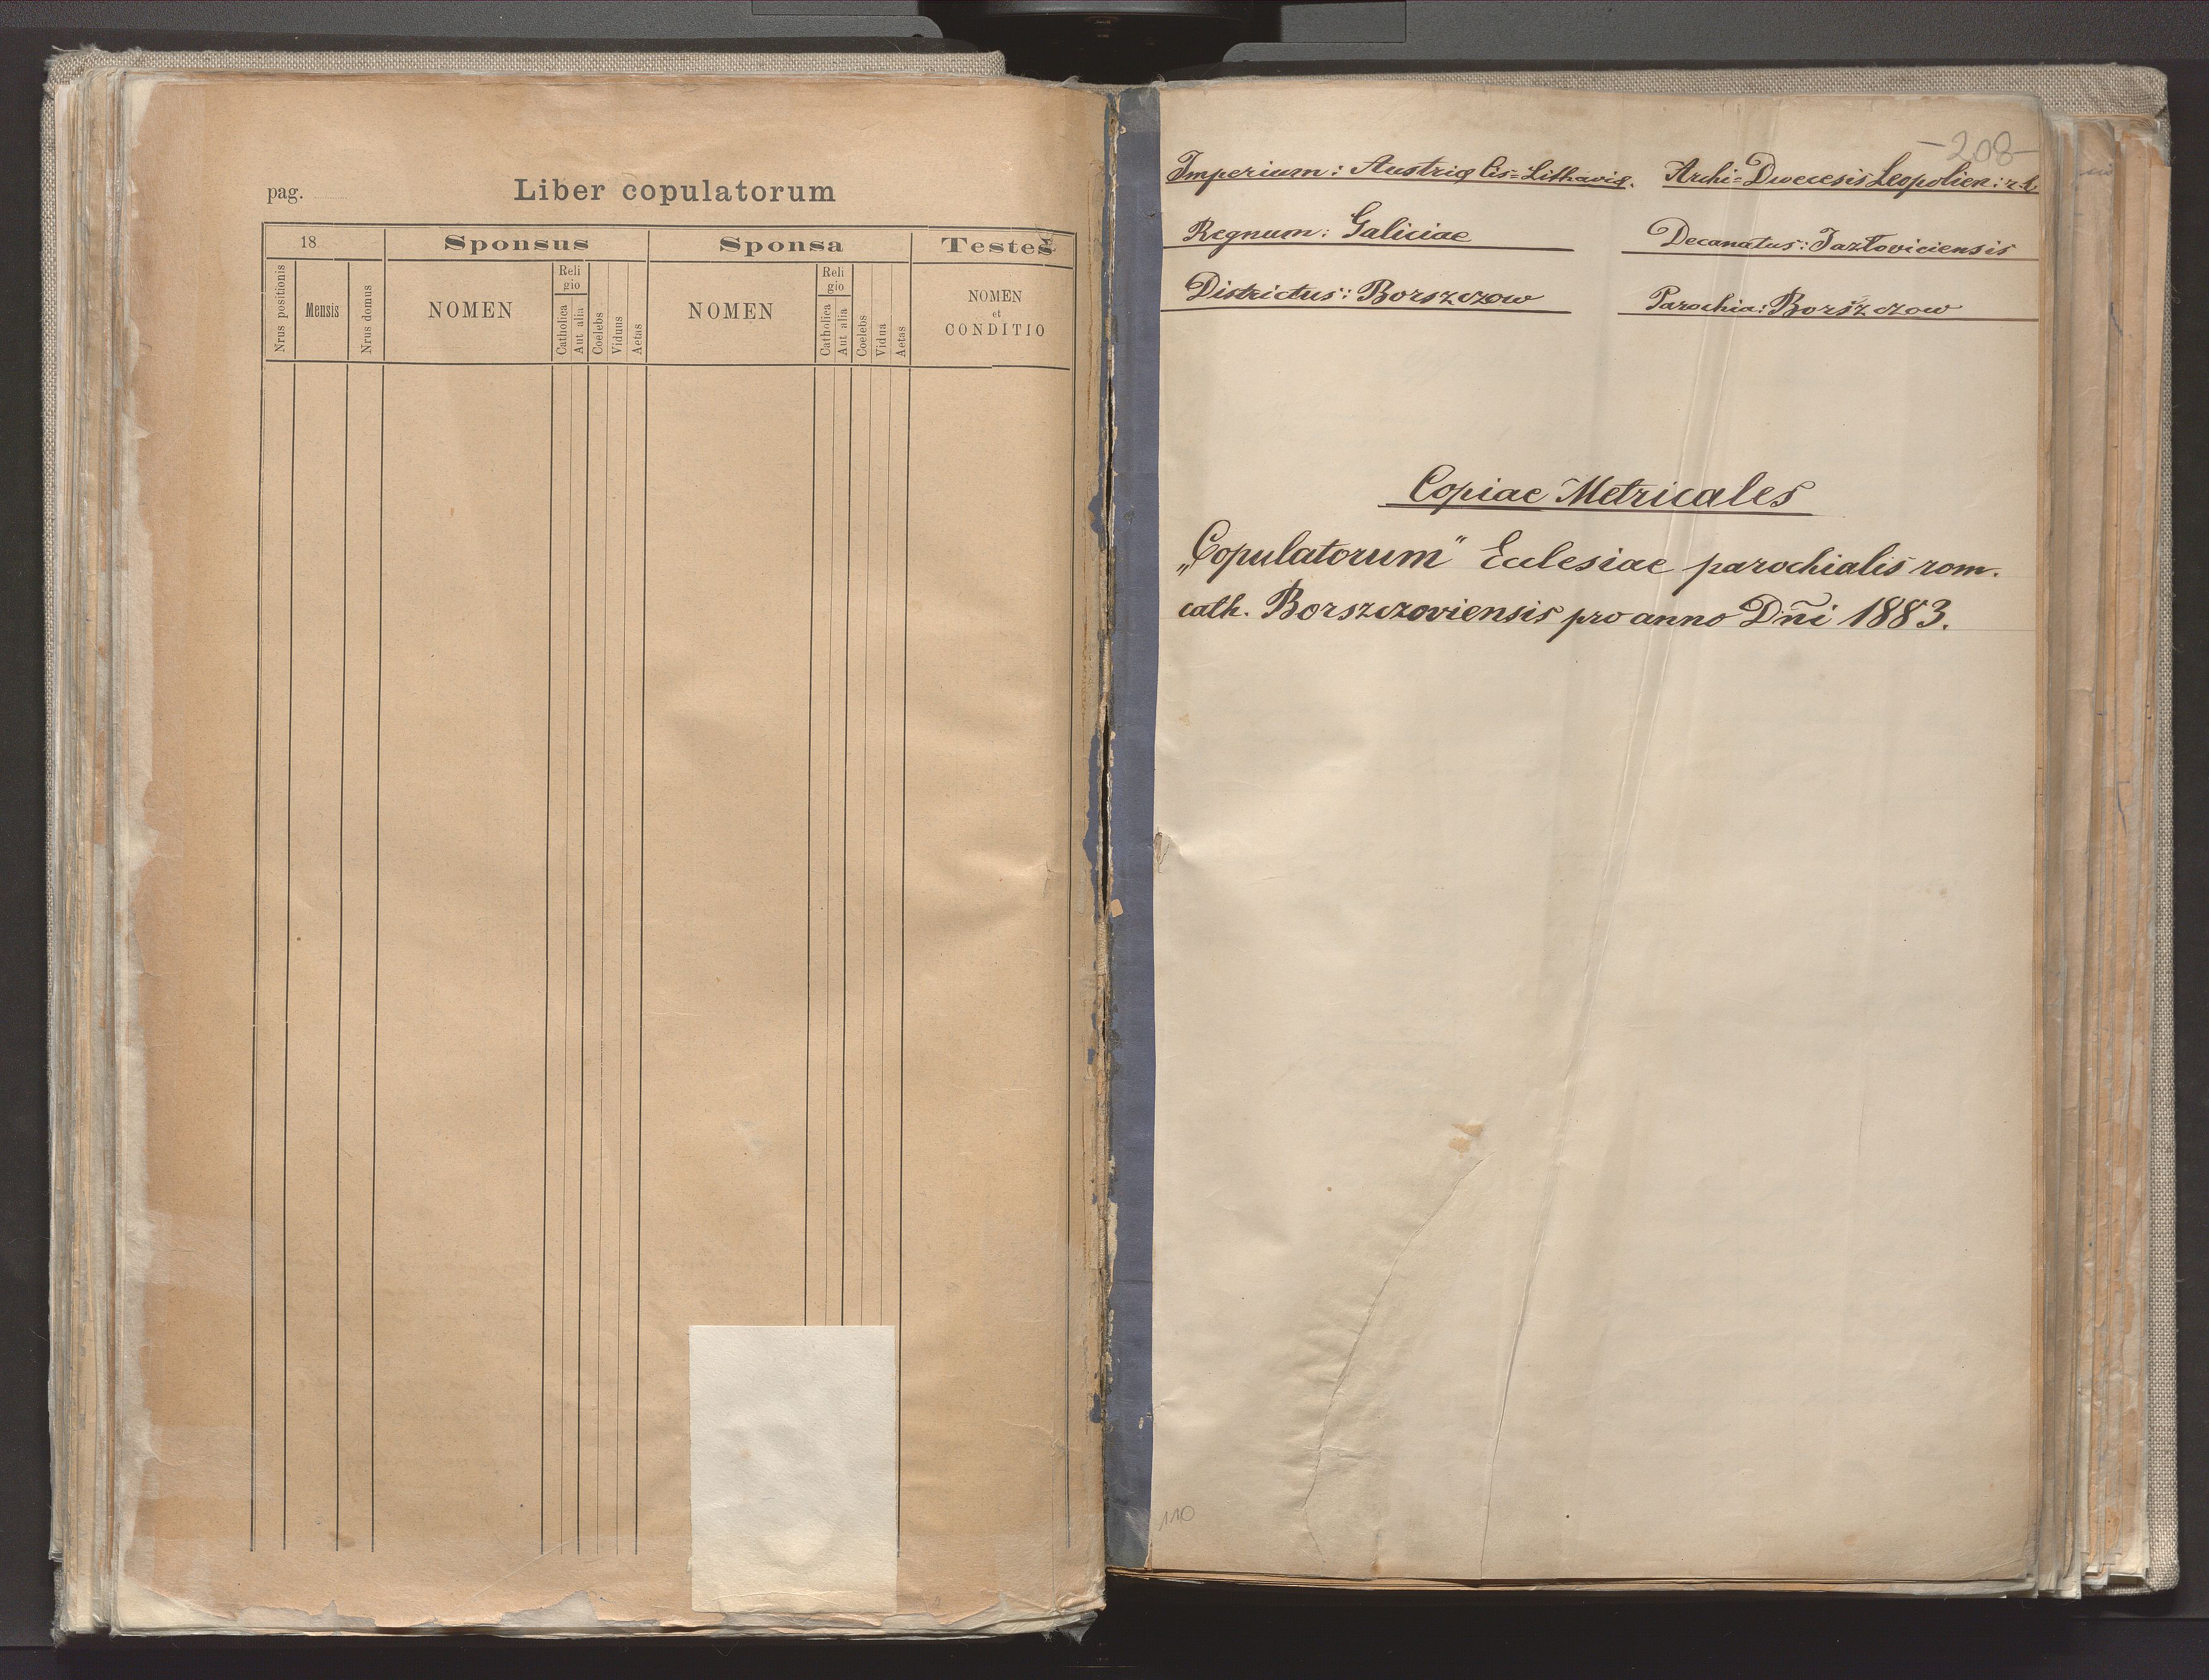 pag.
Liber copulatorum
18
Sponsus
Sponsa
Testes
Nrus positionis
Mensis
Nrus domus
NOMEN
Reli
gio
Catholica
Aut alia
Coelebs
Viduus
Aetas
NOMEN
Reli
gio
Catholica
Aut alia
Coelebs
Vidua
Aetas
NOMEN
et
CONDITIO
-208-
Imperium: Austriae Cis=Lithavię.
Archi=Dioecesis Leopolien: r. l.
Regnum: Galiciae
Decanatus: Jazłoviciensis
Districtus: Borszczow
Parochia: Borszczow
Copiae Metricales
„Copulatorum" Eclesiae parochialis rom.
cath. Borszczoviensis pro anno Dñi 1883.
110